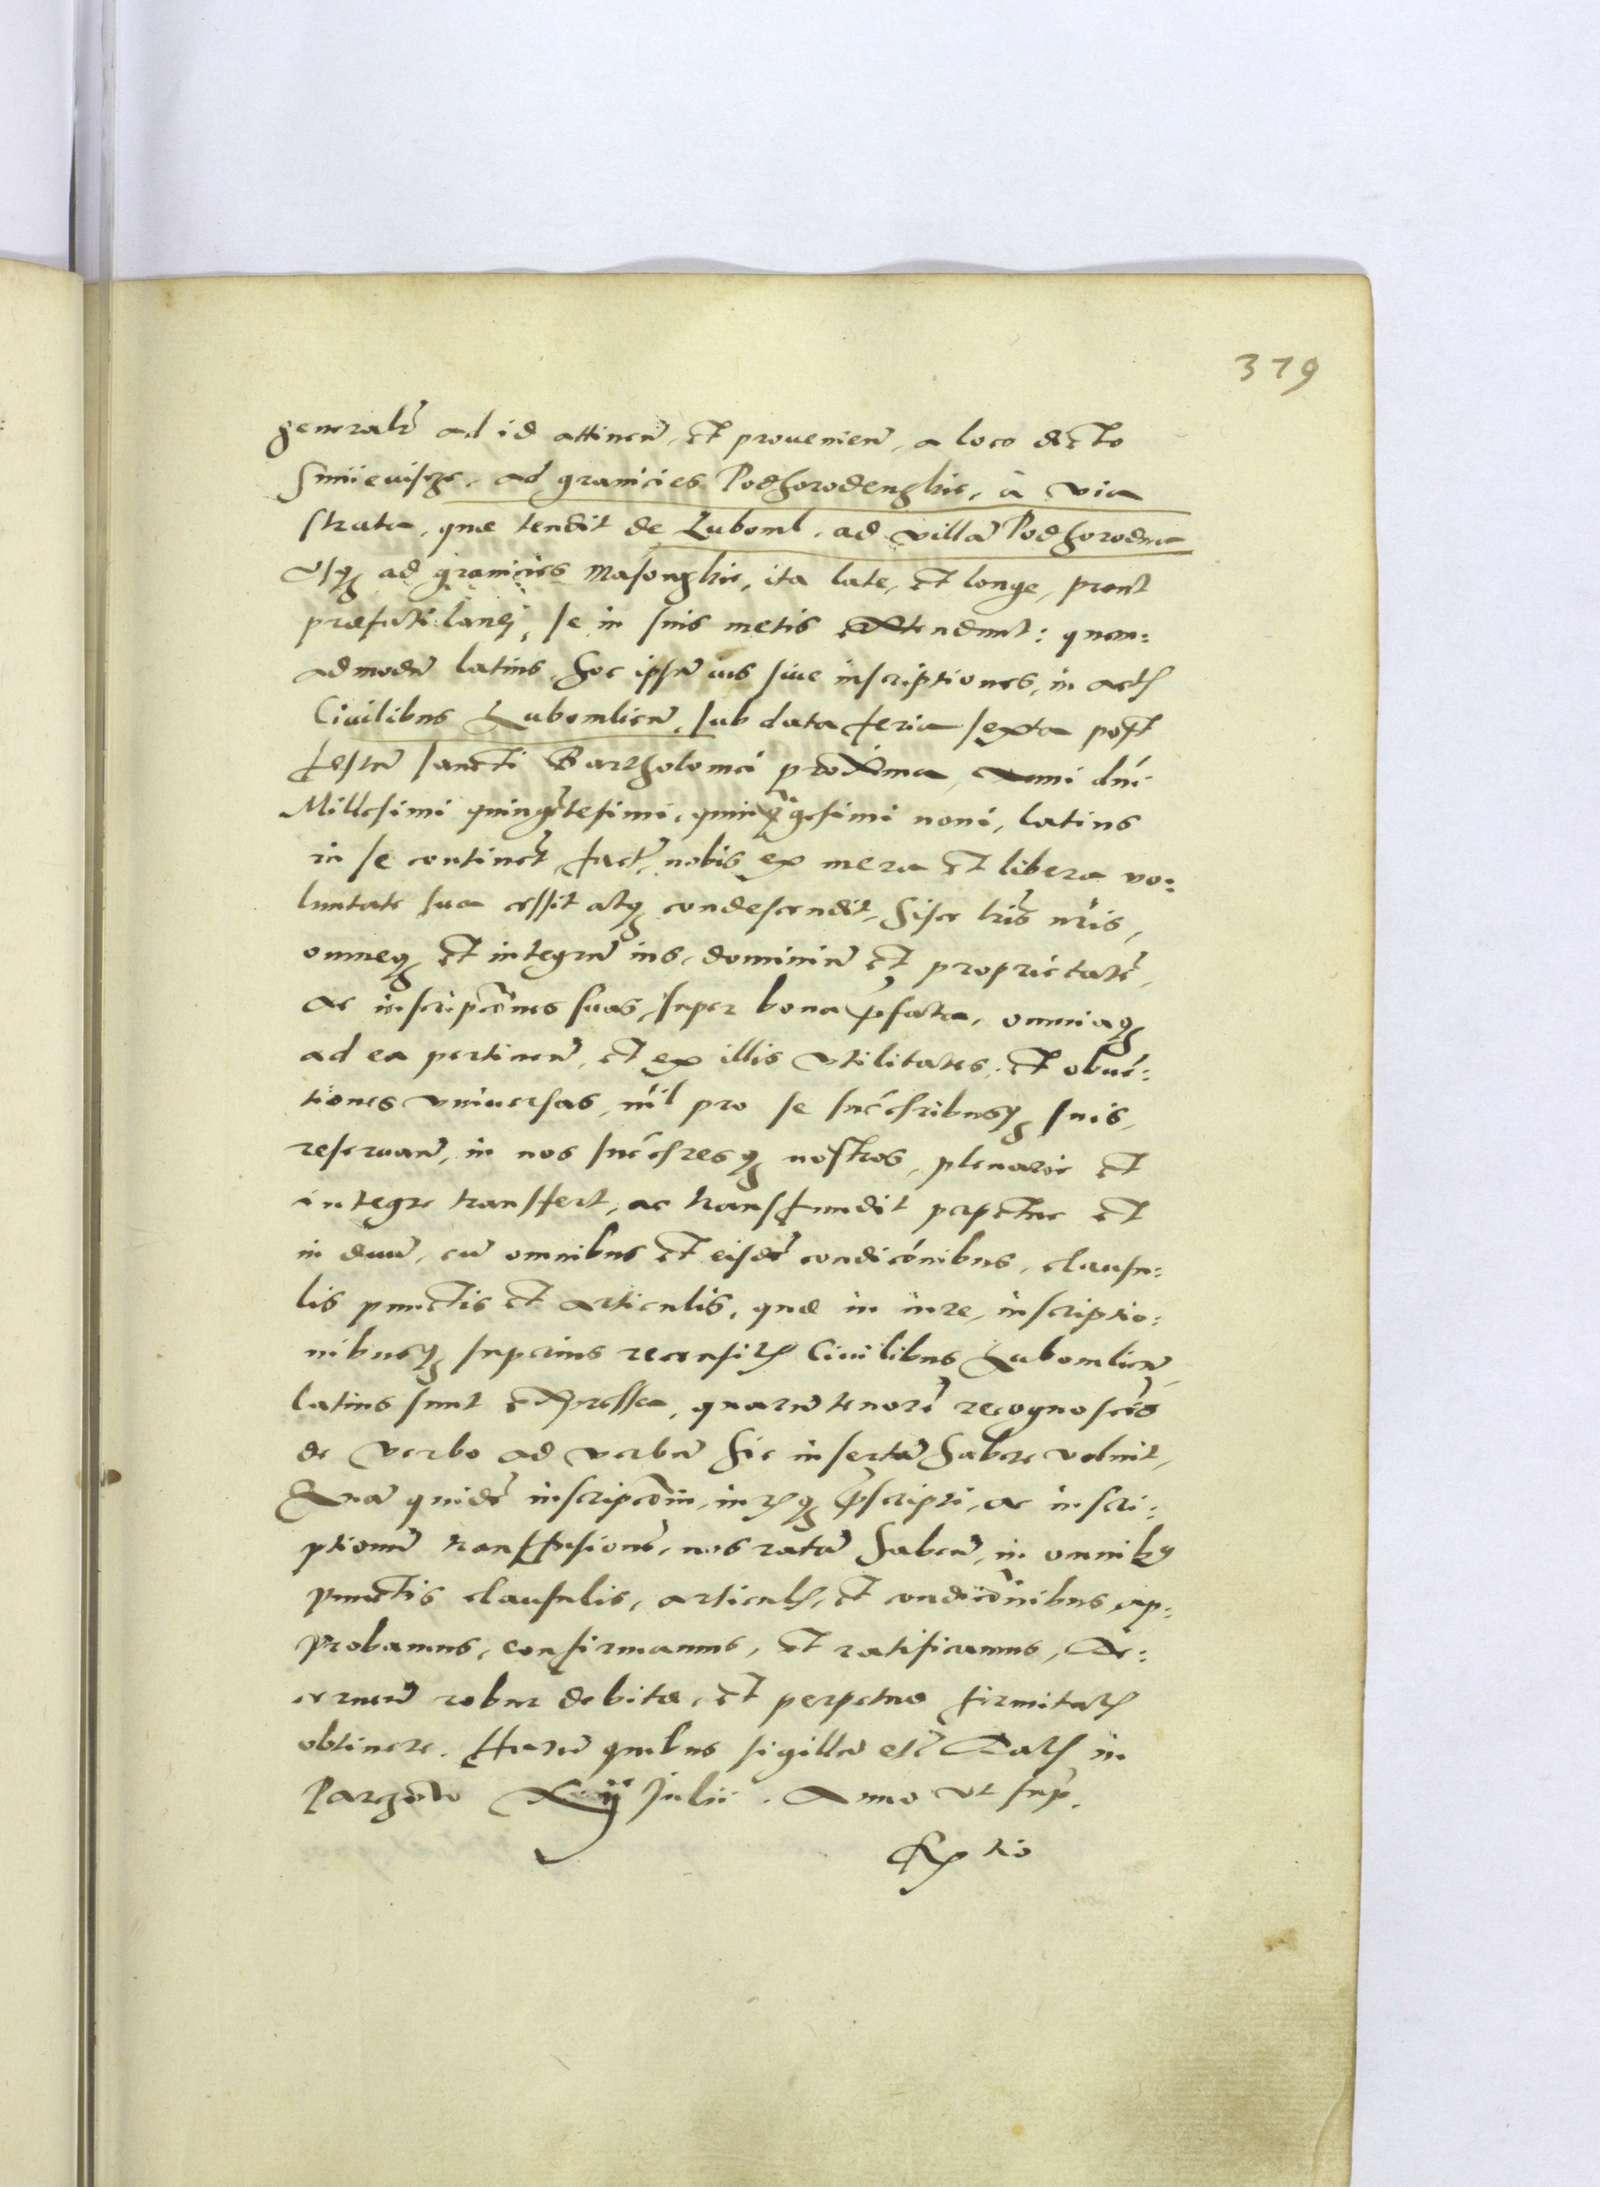 379
generalr̃ ad id attineñ, et prouenieñ, a loco dicto
ad granicies Podhorodenskie, à via
strata, quæ tendit de Luboml, ad villã Podhorodna
vsq̃ ad granicies Masonskie, ita late, et longe, prout
præfati lanei, se in suis metis extendunt: quem:
admodũ latius, hoc ipsũ ius siue inscriptiones, in actis
Ciuilibus Lubomlieñ, sub data feria sexta post
festũ sancti Bartholomei proxima, Anni dni
Millesimi quingẽtesimi, quinq̃gesimi noni, latius
in se continet, nobis ex mera et libera vo:
luntate sua cessit atq̃ condescendit, hisce lr̃is nr̃is,
omneq̃ et integrũ ius, dominiũ et proprietatẽ,
ac inscripcõnes suas, super bona p̃fata, omniaq̃
ad ea pertineñ, et ex illis vtilitates, et obuẽ:
tiones vniuersas, nil pro se succesribusq̃ suis,
reseruañ, in nos succesresq̃ nostros, plenarie et
integre transfert, ac transfundit perpetue et
in æuũ, cũ omnibus et eisdẽ condicionibus, clausu:
lis punctis et articulis, quæ in iure, inscriptio:
nibusq̃ superius recensitis Ciuilibus Lubomlieñ
latius sunt expressa, quarũ tenorẽ recognoscẽs
de verbo ad verbũ hic insertũ habere voluit,
Quã quidẽ inscripcõm, iurisq̃ p̃scripti, ac inscri:
ptionũ transfusionẽ, nos ratã habeñ, in omnibꝫ
punctis clausulis, articulis, et condicõnibus, ap:
probamus, confirmamus, et ratificamus, de:
cerneñ robur debitæ, et perpetuæ firmitatis
obtinere. Harũ quibus sigillũ est Datis in
Parczow Julii. Anno vt sup̃.